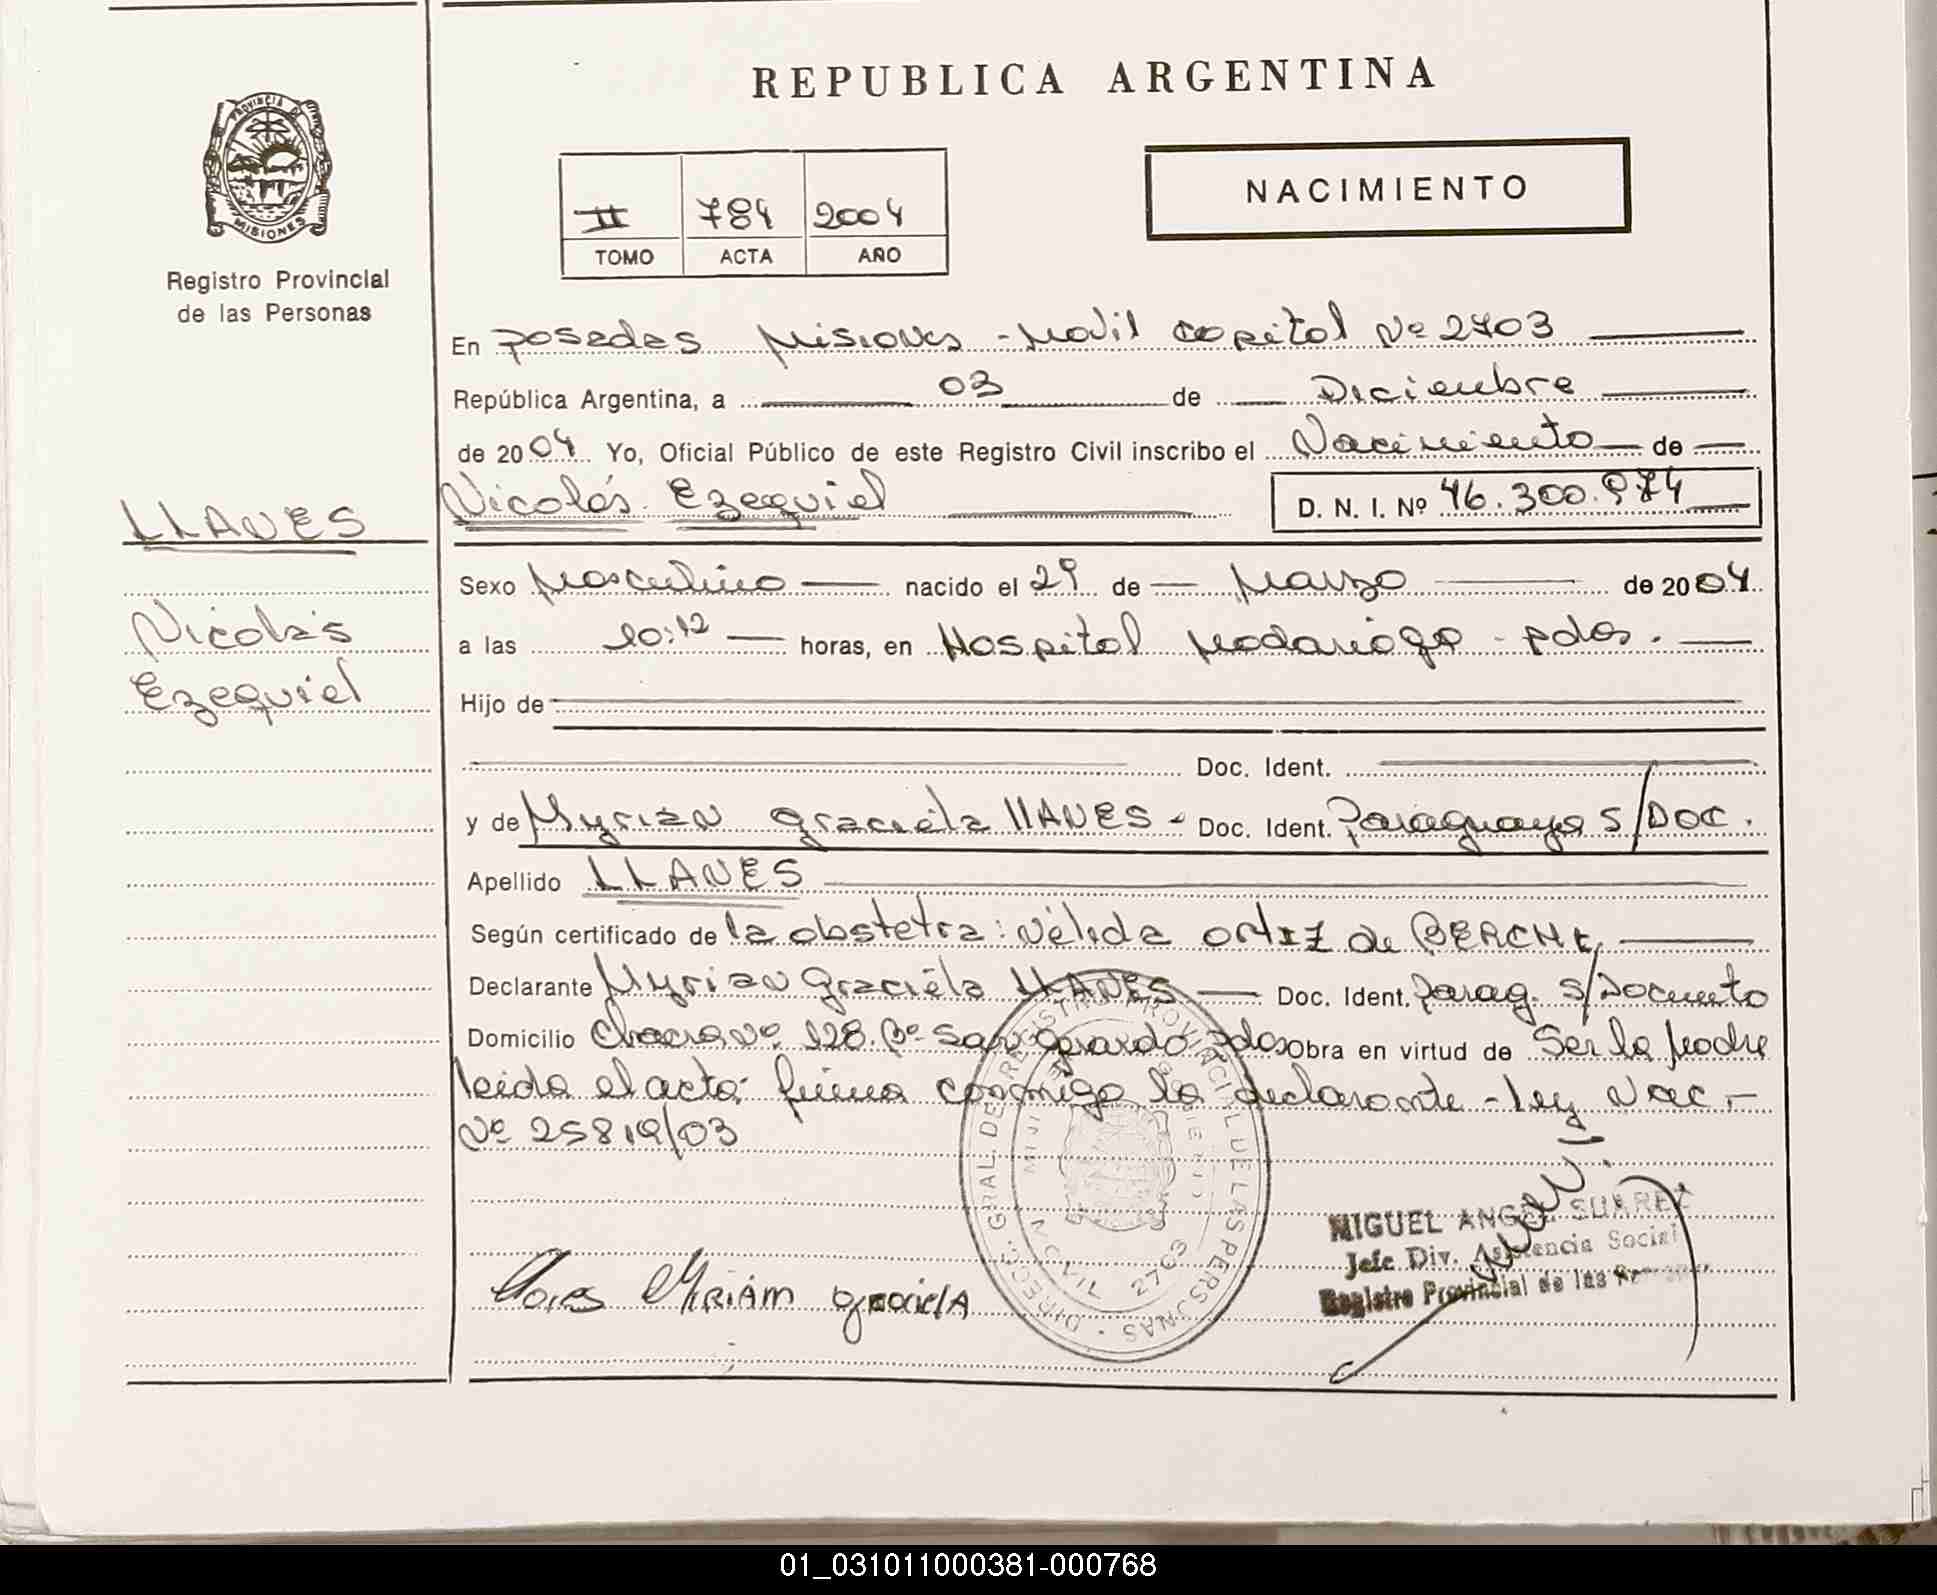 REPUBLICA ARGENTINA
PROVINCIA DE
MISIONES
Registro Provincial
de las Personas
NACIMIENTO
II 784 2004
TOMO ACTA AÑO
En Posadas Misiones - Movil Capital Nº 2703
República Argentina, a 03 de Diciembre
de 2004 Yo, Oficial Público de este Registro Civil inscribo el Nacimiento de
LLANES
Nicolás Ezequiel D. N. I. Nº 46.300.974
Nicolás
Ezequiel
Sexo Masculino nacido el 29 de Marzo de 2004
a las 10:12 horas, en Hospital Madariaga - Pdas.
Hijo de
Doc. Ident.
y de Myrian Graciela LLANES - Doc. Ident. Paraguaya S/DOC.
Apellido LLANES
Según certificado de la obstetra: Nélida Ortiz de
Declarante Myrian Graciela LLANES Doc. Ident. Parag. S/Documto
Domicilio Chacra Nº 128 Bº San Gerardo Pdas Obra en virtud de Ser la Madre
leida el acta firma conmigo la declarante - Ley Nac -
Nº 25819/03
DIRECC. GRAL. DE REGISTRO PROVINCIAL DE LAS PERSONAS
CIVIL 2703
MIGUEL ANGEL SUAREZ
Jefe Div. Asistencia Social
Registro Provincial de las Personas
Miriam Graciela
01_031011000381-000768